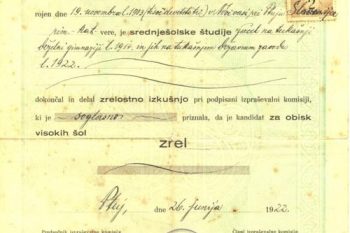 rojen dne 19. novembra l. 1902 v Novi vasi pri Ptuju Slovenija
rim.-kat. vere, je srednješolske študije začel na tukajšnji
deželni gimnaziji l. 1914 in jih na tukajšnjem državnem zavodu
l. 1922.
dokončal in delal zrelostno izkušnjo pri podpisani izpraševalni komisiji,
ki je soglasno priznala, da je kandidat za obisk
visokih šol
zrel
Ptuj, dne 26. junija 1922.
Predsednik izpraševalne komisije Člani izpraševalne komisije